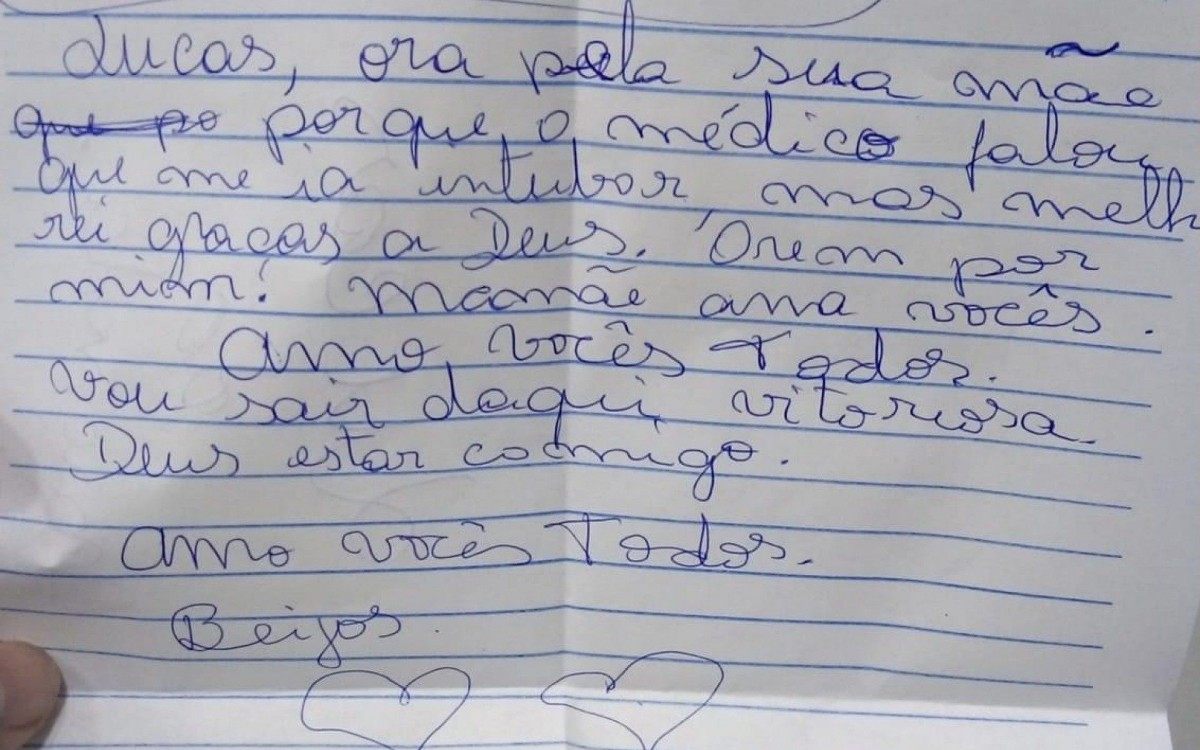 Lucas, ora pela sua mãe
que po porque o médico falou
que me ia intubar, mas melho
rei graças a Deus. Orem por
mim! Mamãe ama vocês.
Amo vocês Todos.
Vou sair daqui vitoriosa.
Deus estar comigo.
Amo vocês Todos.
Beijos.